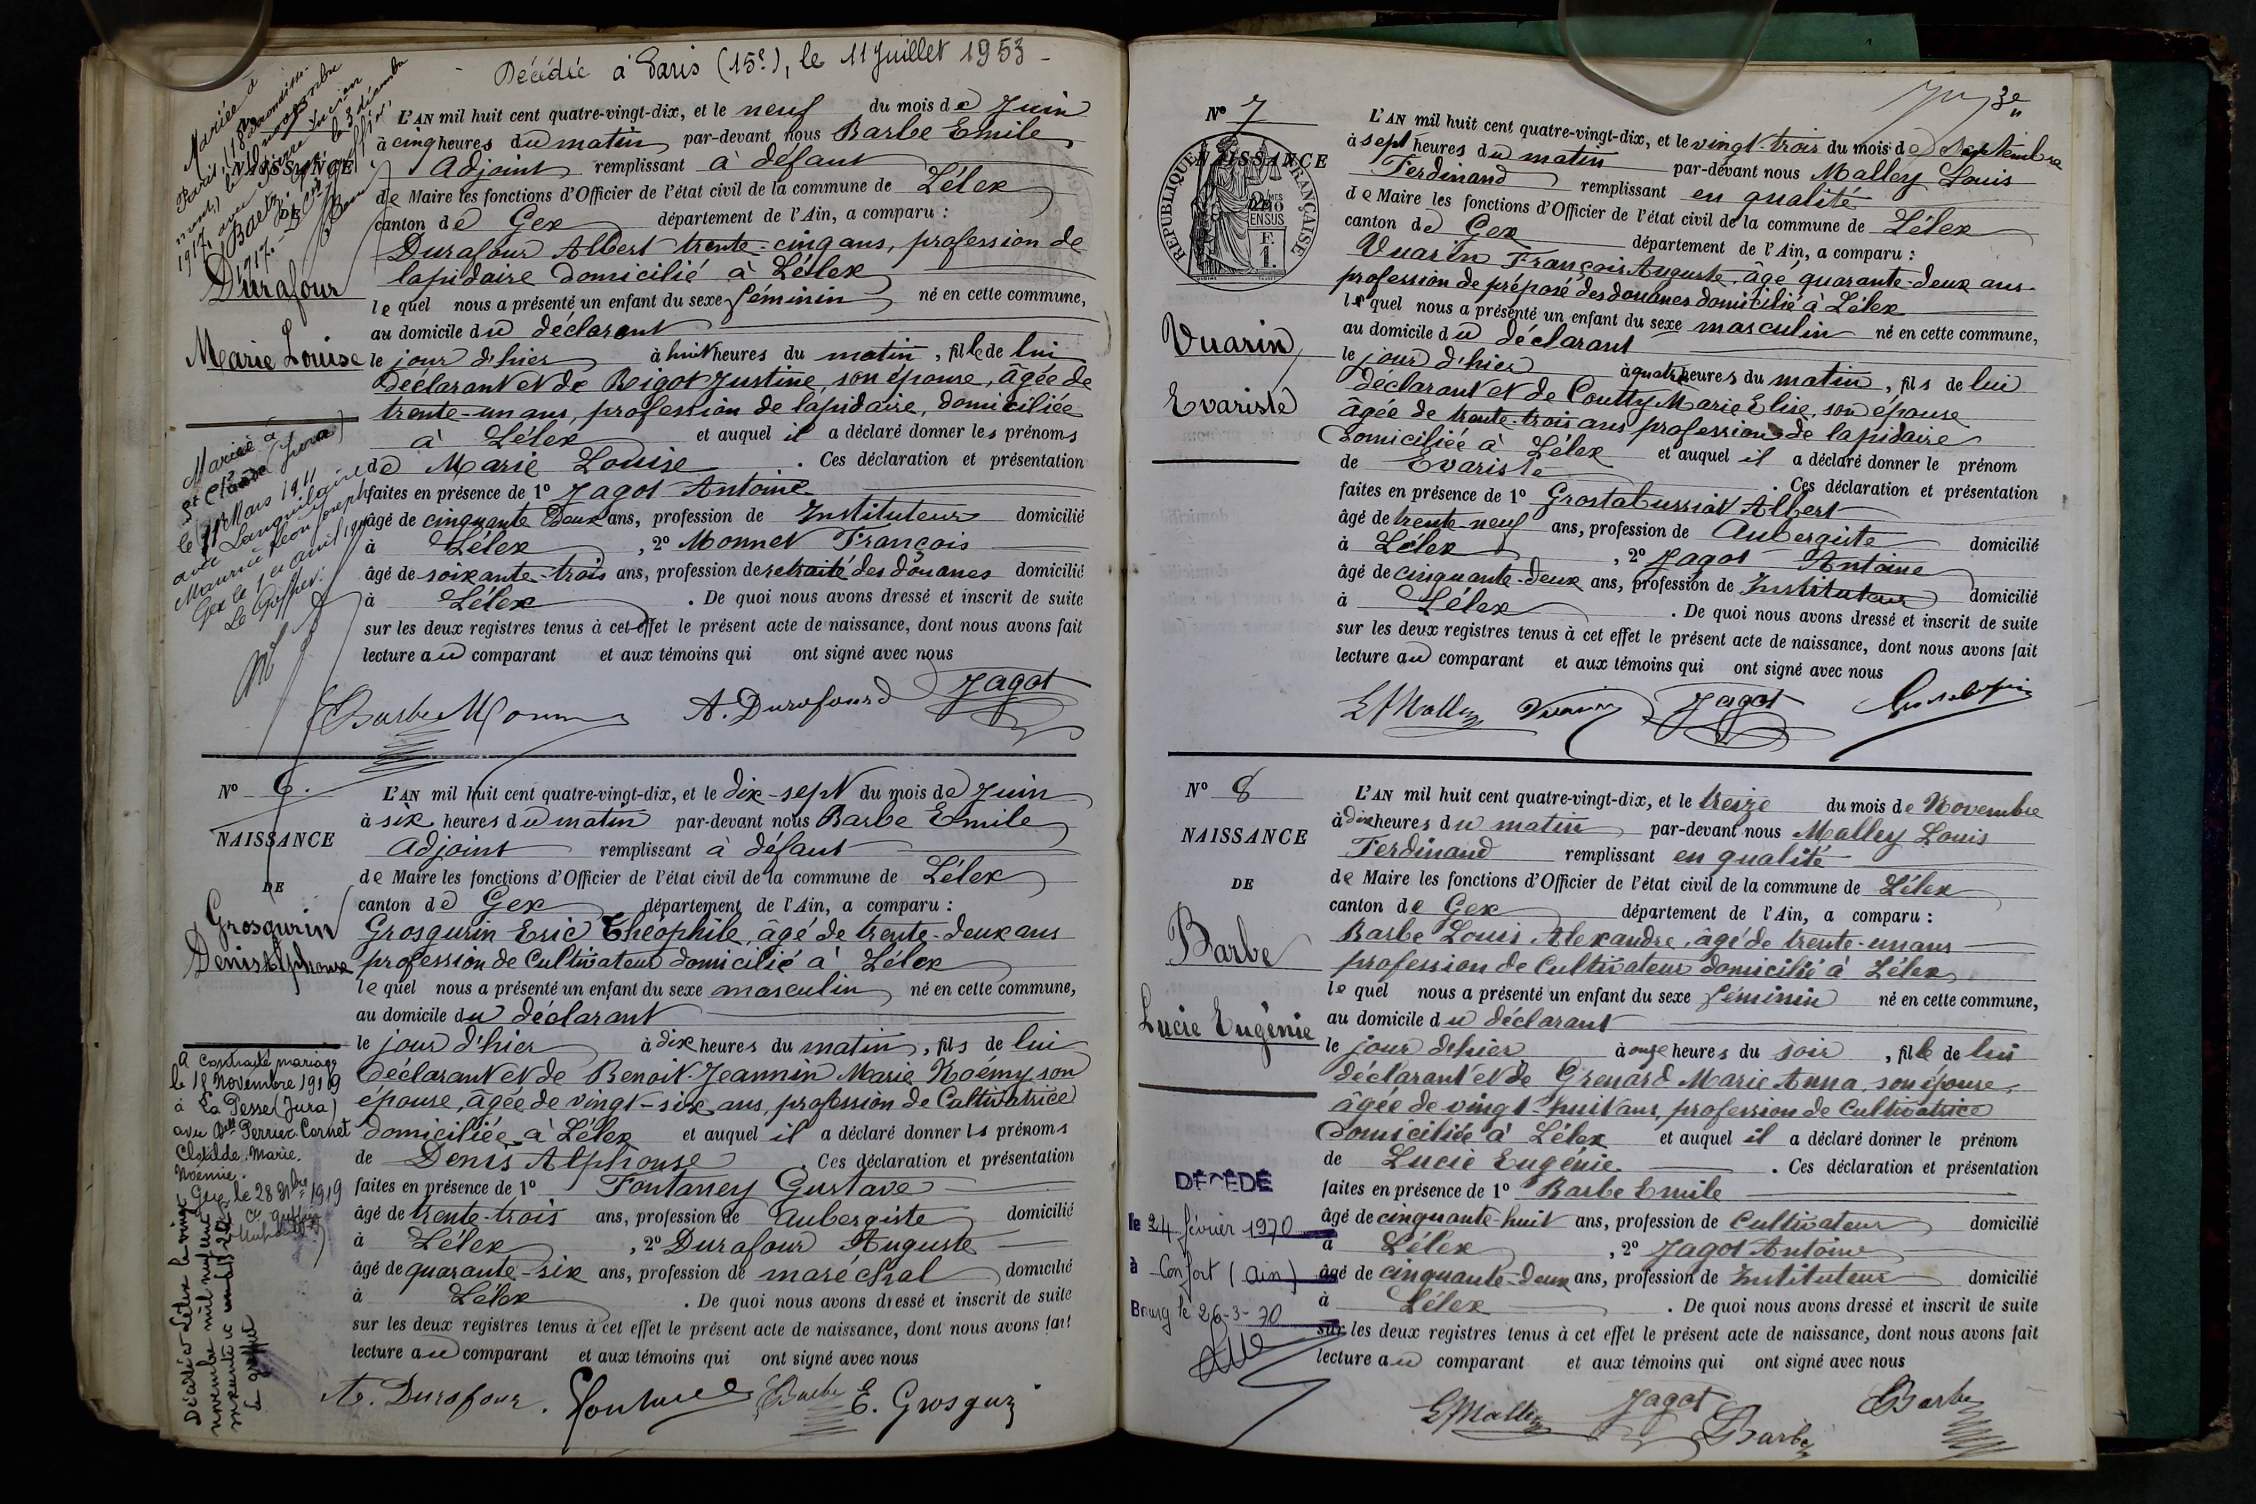 Décédée à Paris (15e), le 11 Juillet 1953 -
Mariée à
Paris (18e arrondisse-
ment) le novembre
1917, avec Pierre Lucien
Baetz
1917.
NAISSANCE
Durafour
Marie Louise
L'AN mil huit cent quatre-vingt-dix, et le neuf du mois de Juin
à cinq heures du matin par-devant nous Barbe Emile
Adjoint remplissant à défaut
de Maire les fonctions d'Officier de l'état civil de la commune de Lélex
canton de Gex département de l'Ain, a comparu :
Durafour Albert trente-cinq ans, profession de
lapidaire domicilié à Lélex
lequel nous a présenté un enfant du sexe féminin né en cette commune,
au domicile du déclarant
le jour d'hier à huit heures du matin, fille de lui
déclarant et de Bigot Justine, son épouse, âgée de
trente-un ans, profession de lapidaire, domiciliée
à Lélex et auquel il a déclaré donner les prénoms
de Marie Louise. Ces déclaration et présentation
faites en présence de 1° Jagot Antoine
âgé de cinquante deux ans, profession de Instituteur domicilié
à Lélex, 2° Monnet François
âgé de soixante-trois ans, profession de retraité des douanes domicilié
à Lélex. De quoi nous avons dressé et inscrit de suite
sur les deux registres tenus à cet effet le présent acte de naissance, dont nous avons fait
lecture au comparant et aux témoins qui ont signé avec nous
Mariée à
St Claude (Jura)
le Mars 1911
avec Lanquilaire
Maurice Léon Joseph
Gex le 1er avril 1911
Le Greffier:
Barbe Monn A. Durafourd Jagot
N° 6.
NAISSANCE
DE
Grosgurin
Denis Alphonse
L'AN mil huit cent quatre-vingt-dix, et le dix-sept du mois de Juin
à six heures du matin par-devant nous Barbe Emile
Adjoint remplissant à défaut
de Maire les fonctions d'Officier de l'état civil de la commune de Lélex
canton de Gex département de l'Ain, a comparu :
Grosgurin Eric Théophile, âgé de trente-deux ans
profession de Cultivateur domicilié à Lélex
lequel nous a présenté un enfant du sexe masculin né en cette commune,
au domicile du déclarant
le jour d'hier à dix heures du matin, fils de lui
déclarant et de Benoit-Jeannin Marie Noémy, son
épouse, âgée de vingt-six ans, profession de Cultivatrice
domiciliée à Lélex et auquel il a déclaré donner les prénoms
de Denis Alphonse. Ces déclaration et présentation
faites en présence de 1° Fontaney Gustave
âgé de trente-trois ans, profession de Aubergiste domicilié
à Lélex, 2° Durafour Auguste
âgé de quarante-six ans, profession de maréchal domicilié
à Lélex. De quoi nous avons dressé et inscrit de suite
sur les deux registres tenus à cet effet le présent acte de naissance, dont nous avons fait
lecture au comparant et aux témoins qui ont signé avec nous
A contracté mariage
le 18 Novembre 1919
à La Pesse (Jura)
avec Delle Perrier-Cornet
Clotilde. Marie.
Noémie.
Gex, le 28 9bre 1919
Le greffier
Décédé à Lélex le vingt
novembre mil neuf cent
Le greffier
A. Durafour. Fontaney Barbe E. Grosgur
N° 7
NAISSANCE
RÉPUBLIQUE FRANÇAISE
Vuarin
Evariste
L'AN mil huit cent quatre-vingt-dix, et le vingt-trois du mois de Septembre
à sept heures du matin par-devant nous Malley Louis
Ferdinand remplissant en qualité
de Maire les fonctions d'Officier de l'état civil de la commune de Lélex
canton de Gex département de l'Ain, a comparu :
Vuarin François Auguste, âgé quarante-deux ans
profession de préposé des douanes domicilié à Lélex
lequel nous a présenté un enfant du sexe masculin né en cette commune,
au domicile du déclarant
le jour d'hier à quatre heures du matin, fils de lui
déclarant et de Coutty Marie Elise, son épouse
âgée de trente-trois ans profession de lapidaire
domiciliée à Lélex et auquel il a déclaré donner le prénom
de Evariste. Ces déclaration et présentation
faites en présence de 1° Grostabussiat Albert
âgé de trente-neuf ans, profession de Aubergiste domicilié
à Lélex, 2° Jagot Antoine
âgé de cinquante-deux ans, profession de Instituteur domicilié
à Lélex. De quoi nous avons dressé et inscrit de suite
sur les deux registres tenus à cet effet le présent acte de naissance, dont nous avons fait
lecture au comparant et aux témoins qui ont signé avec nous
LfMalley Vuarin Jagot
N° 8
NAISSANCE
DE
Barbe
Lucie Eugénie
L'AN mil huit cent quatre-vingt-dix, et le treize du mois de Novembre
à dix heures du matin par-devant nous Malley Louis
Ferdinand remplissant en qualité
de Maire les fonctions d'Officier de l'état civil de la commune de Lélex
canton de Gex département de l'Ain, a comparu :
Barbe Louis Alexandre, âgé de trente-un ans
profession de Cultivateur domicilié à Lélex
lequel nous a présenté un enfant du sexe féminin né en cette commune,
au domicile du déclarant
le jour d'hier à onze heures du soir, fille de lui
déclarant et de Grenard Marie Anna, son épouse,
âgée de vingt-huit ans, profession de Cultivatrice
domiciliée à Lélex et auquel il a déclaré donner le prénom
de Lucie Eugénie. Ces déclaration et présentation
faites en présence de 1° Barbe Emile
âgé de cinquante-huit ans, profession de Cultivateur domicilié
à Lélex, 2° Jagot Antoine
âgé de cinquante-deux ans, profession de Instituteur domicilié
à Lélex. De quoi nous avons dressé et inscrit de suite
sur les deux registres tenus à cet effet le présent acte de naissance, dont nous avons fait
lecture au comparant et aux témoins qui ont signé avec nous
DÉCÉDÉ
le 24 février 1970
à Confort (Ain)
Bourg le 26-3-70
LfMalley Jagot Barbe Barbe